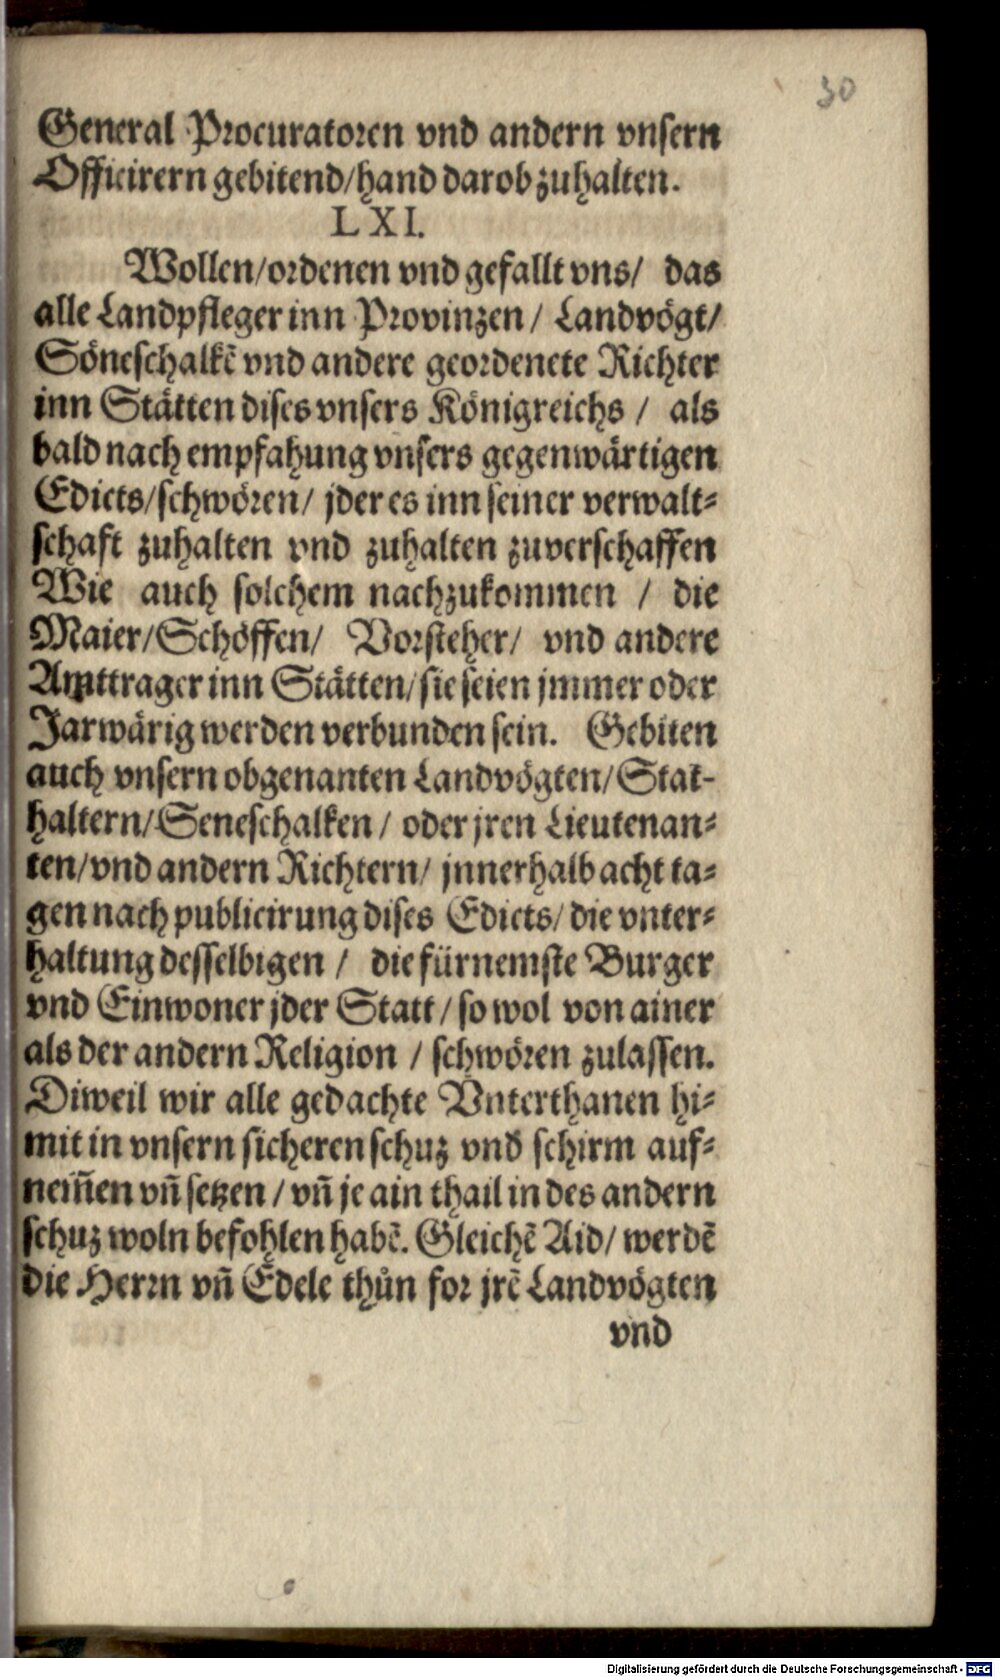 30
General Procuratoren vnd andern vnsern
Officirern gebitend/hand darob zuhalten.
LXI.
Wollen/ordenen vnd gefallt vns/ das
alle Landpfleger inn Provinzen/ Landvögt/
Söneschalkẽ vnd andere geordenete Richter
inn Stätten dises vnsers Königreichs/ als
bald nach empfahung vnsers gegenwärtigen
Edicts/schwören/ jder es inn seiner verwalt-
schaft zuhalten vnd zuhalten zuverschaffen
Wie auch solchem nachzukommen / die
Maier/Schöffen/ Vorsteher/ vnd andere
Amttrager inn Stätten/sie seien jmmer oder
Jarwärig werden verbunden sein. Gebiten
auch vnsern obgenanten Landvögten/Stat-
haltern/Seneschalken/ oder jren Lieutenan-
ten/vnd andern Richtern/ jnnerhalb acht ta-
gen nach publicirung dises Edicts/die vnter-
haltung desselbigen/ die fürnemste Burger
vnd Einwoner jder Statt/so wol von ainer
als der andern Religion / schwören zulassen.
Diweil wir alle gedachte Vnterthanen hi-
mit in vnsern sicheren schuz vnd schirm auf-
nem̃en vñ setzen/vñ je ain thail in des andern
schuz woln befohlen habẽ. Gleichẽ Aid/werdẽ
die Herrn vñ Edele thůn for jrẽ Landvögten
vnd
Digitalisierung gefördert durch die Deutsche Forschungsgemeinschaft - DFG